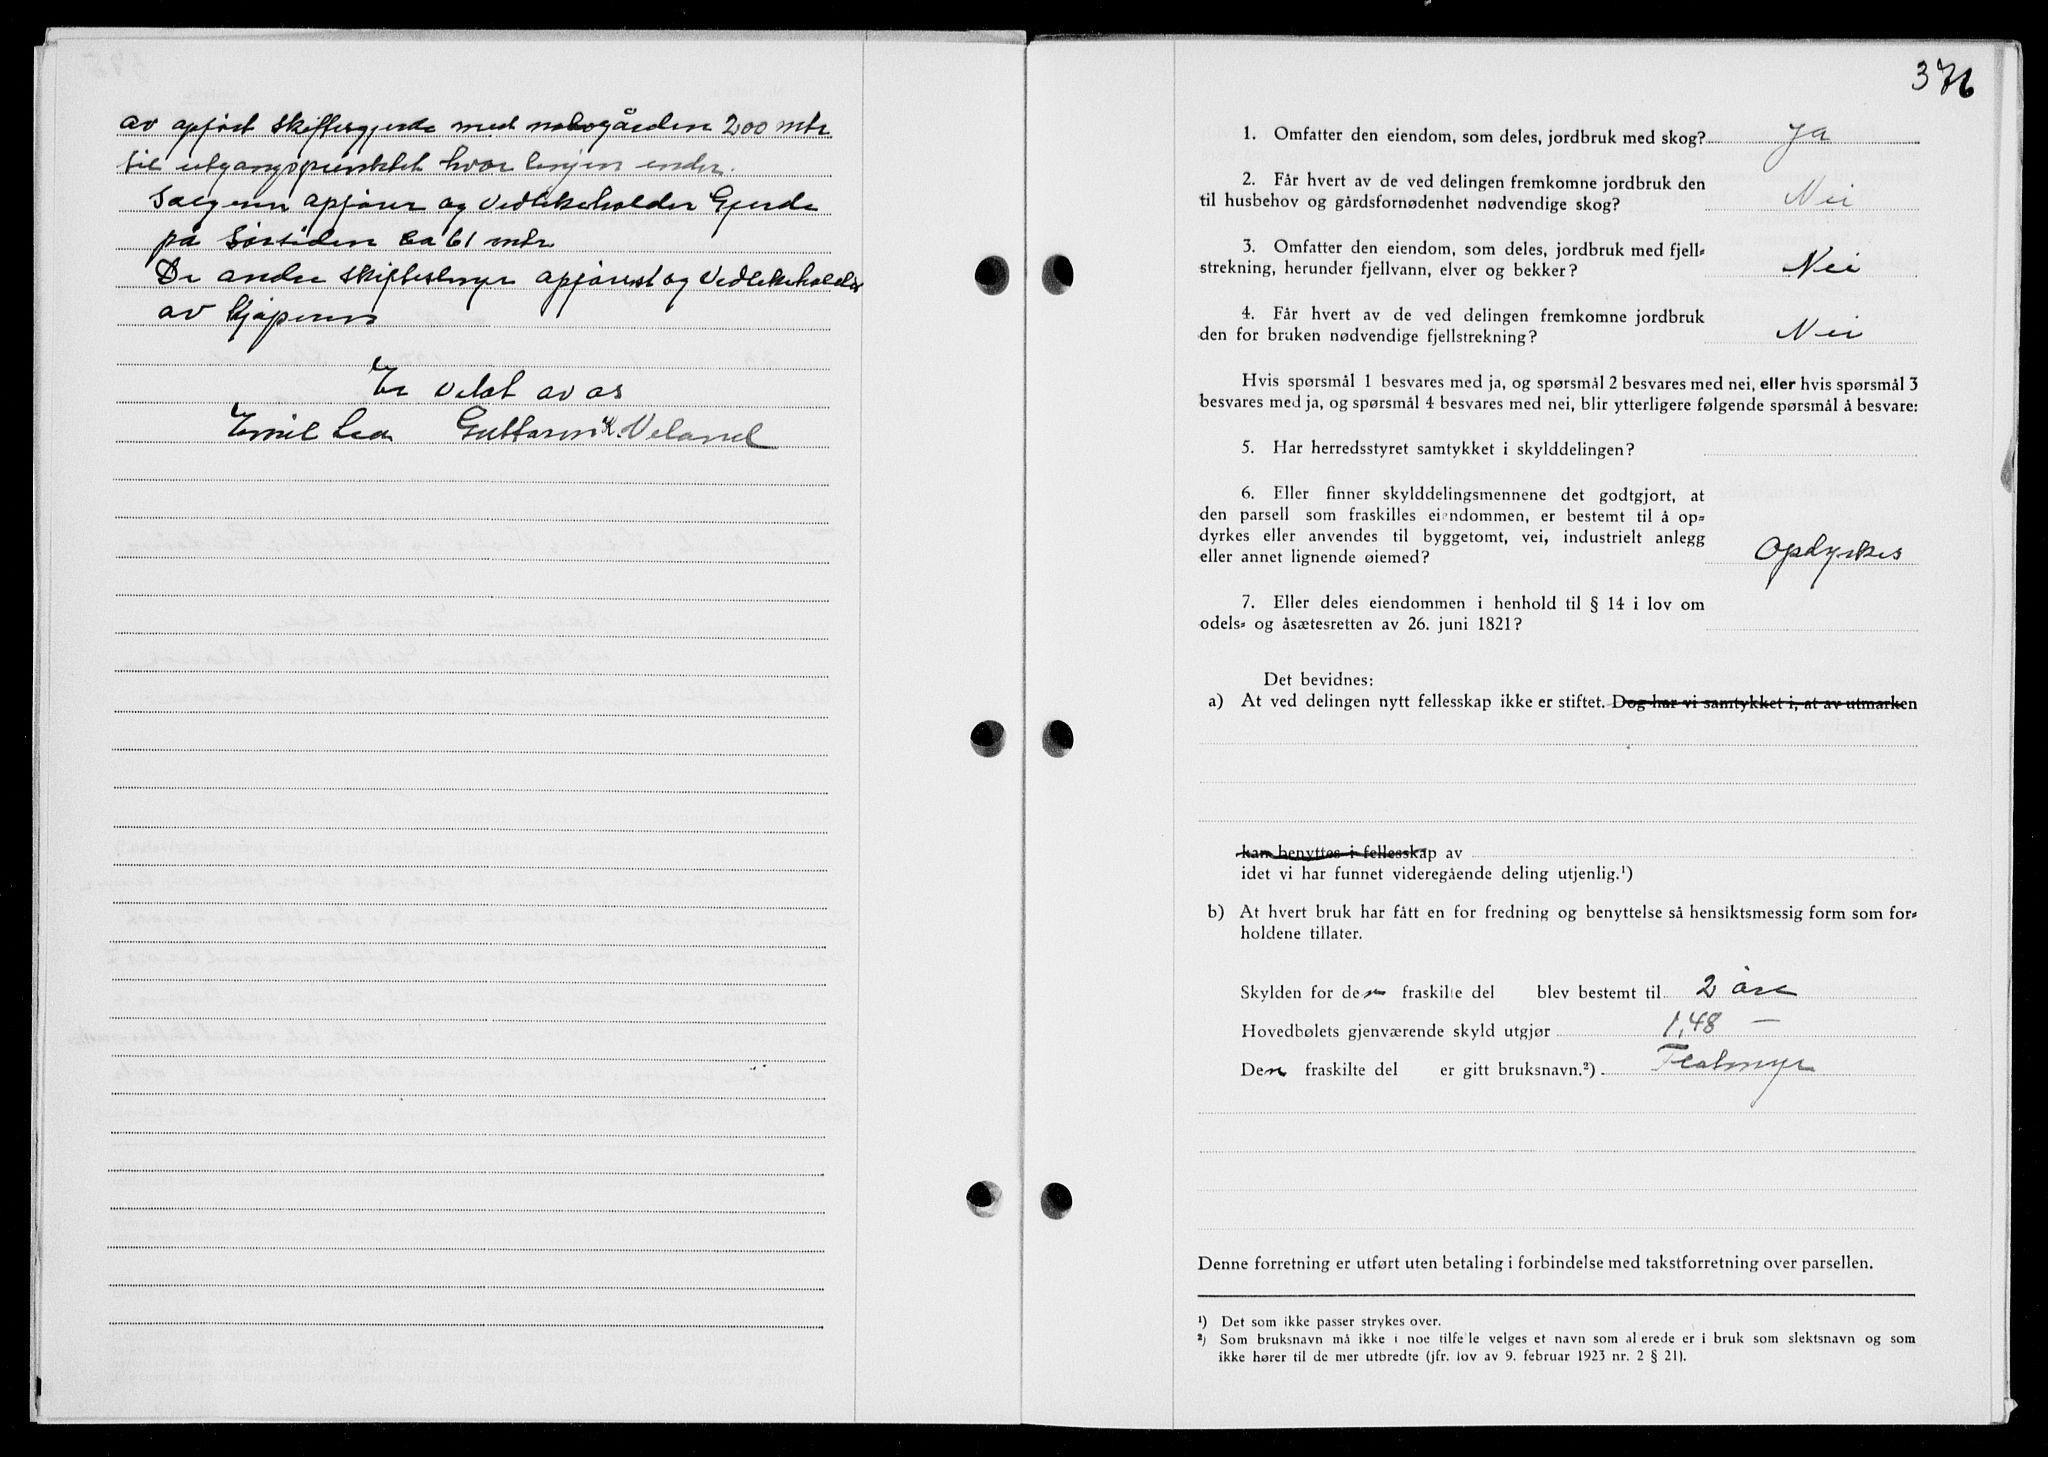 av opført skiftesgjerde med nabogården 200 mtr
til utgangspunktet hvor linjen ender.
Selgeren opfører og vedlikeholder Gjerde
på Sørsiden ca 61 mtr
De andre skifteslinjer opføres og vedlikeholdes
av kjøperen
Er vedtat av os
Emil Lea Guttorm K. Veland
376
1. Omfatter den eiendom, som deles, jordbruk med skog? Ja
2. Får hvert av de ved delingen fremkomne jordbruk den
til husbehov og gårdsfornødenhet nødvendige skog? Nei
3. Omfatter den eiendom, som deles, jordbruk med fjell=
strekning, herunder fjellvann, elver og bekker? Nei
4. Får hvert av de ved delingen fremkomne jordbruk
den for bruken nødvendige fjellstrekning? Nei
Hvis spørsmål 1 besvares med ja, og spørsmål 2 besvares med nei, eller hvis spørsmål 3
besvares med ja, og spørsmål 4 besvares med nei, blir ytterligere følgende spørsmål å besvare:
5. Har herredsstyret samtykket i skylddelingen?
6. Eller finner skylddelingsmennene det godtgjort, at
den parsell som fraskilles eiendommen, er bestemt til å op=
dyrkes eller anvendes til byggetomt, vei, industrielt anlegg
eller annet lignende øiemed? Opdyrkes
7. Eller deles eiendommen i henhold til § 14 i lov om
odels= og åsætesretten av 26. juni 1821?
Det bevidnes:
a) At ved delingen nytt fellesskap ikke er stiftet. Dog har vi samtykket i, at av utmarken
kan benyttes i fellesskap av
idet vi har funnet videregående deling utjenlig.¹)
b) At hvert bruk har fått en for fredning og benyttelse så hensiktsmessig form som for=
holdene tillater.
Skylden for den fraskilte del blev bestemt til 2 øre
Hovedbølets gjenværende skyld utgjør 1,48 —
Den fraskilte del er gitt bruksnavn.²) Flatmyr
Denne forretning er utført uten betaling i forbindelse med takstforretning over parsellen.
¹) Det som ikke passer strykes over.
²) Som bruksnavn må ikke i noe tilfelle velges et navn som allerede er i bruk som slektsnavn og som
ikke hører til de mer utbredte (jfr. lov av 9. februar 1923 nr. 2 § 21).